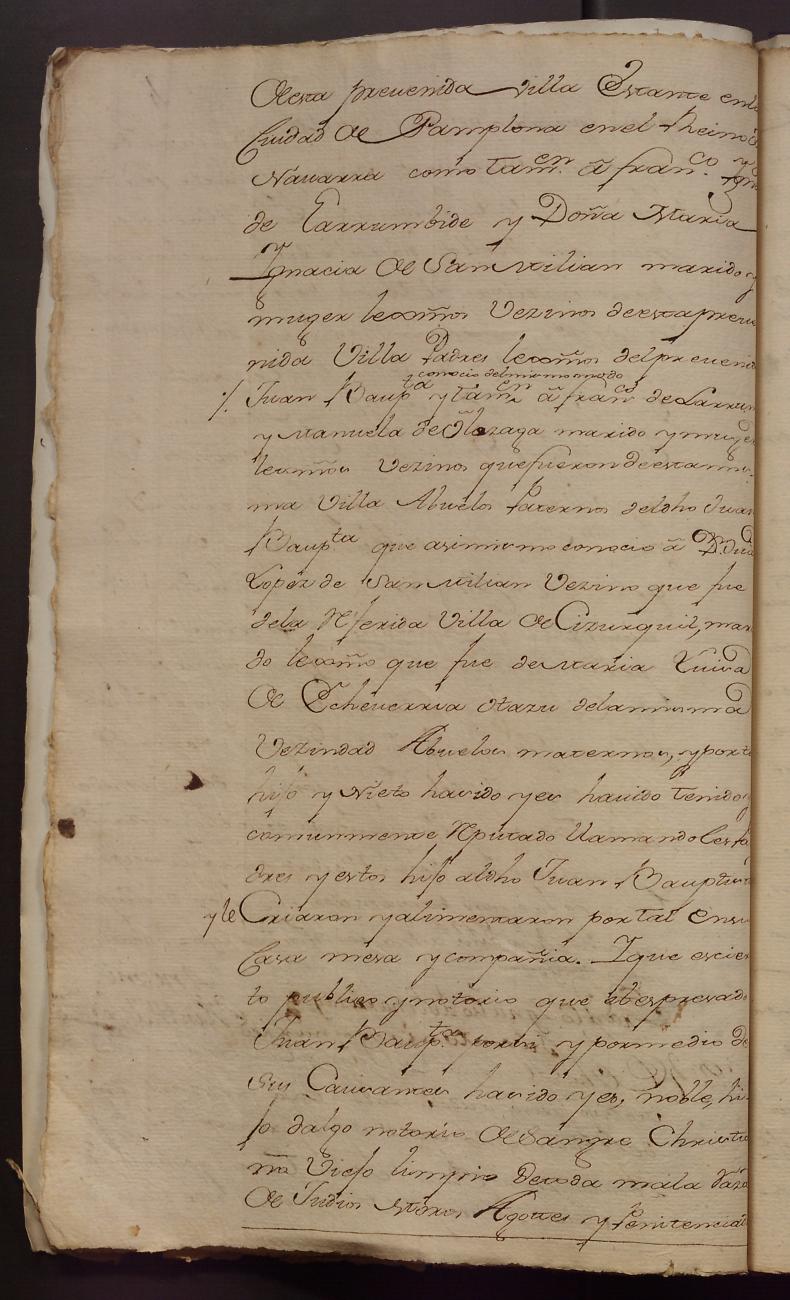 desta prevenida Villa Estante en la
Ciudad de Pamplona en el Rheino de
Navarra como tam.en â fran.co Ygn
de Larrumbide y Doña Maria
Ygnacia de San Milian marido y
muger lexmos Vezinos de esta preve
nida Villa Padres lexmos del prevenid
conocio del mismo modo
/. Juan Baup.ta y tam.en â fran.co de Larrum
y Manuela de Olozaga marido y muger
lexmos Vezinos que fueron de esta mis
ma Villa Abuelos Paternos del dho Juan
Baup.ta que asimismo conocio â D.
Lopez de San Milian Vezino que fue
de la Referida Villa de Cizurquil, mari
do lexmo que fue de Maria Luisa
de Echeverria Otazu de la misma
Vezindad Abuelos maternos, y por tal
hijo y Nieto ha sido y es havido tenido y
comunmente Reputado llamandoles Pa
dres y estos hijo al dho Juan Bauptista
y le Criaron y alimentaron por tal en su
Casa mesa y compañia. Y que es cier
to publico y notorio que el espresado
Juan Baup.ta por si y por medio de
sus Causantes ha sido y es, noble, hi
jo dalgo notorio de Sangre Christia
no Viejo limpio de toda mala raza
de Judios Moros Agotes y Penitenciad